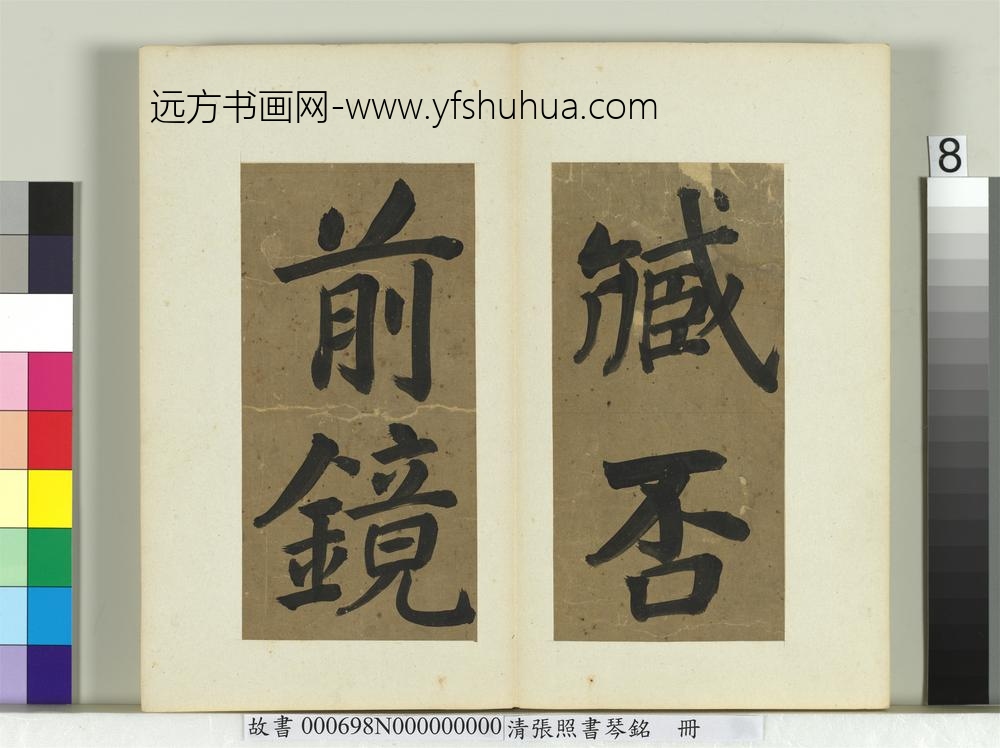 远方书画网-www.yfshuhua.com
8
臧否
前鏡
故書 000698N000000000 清張照書琴銘 冊